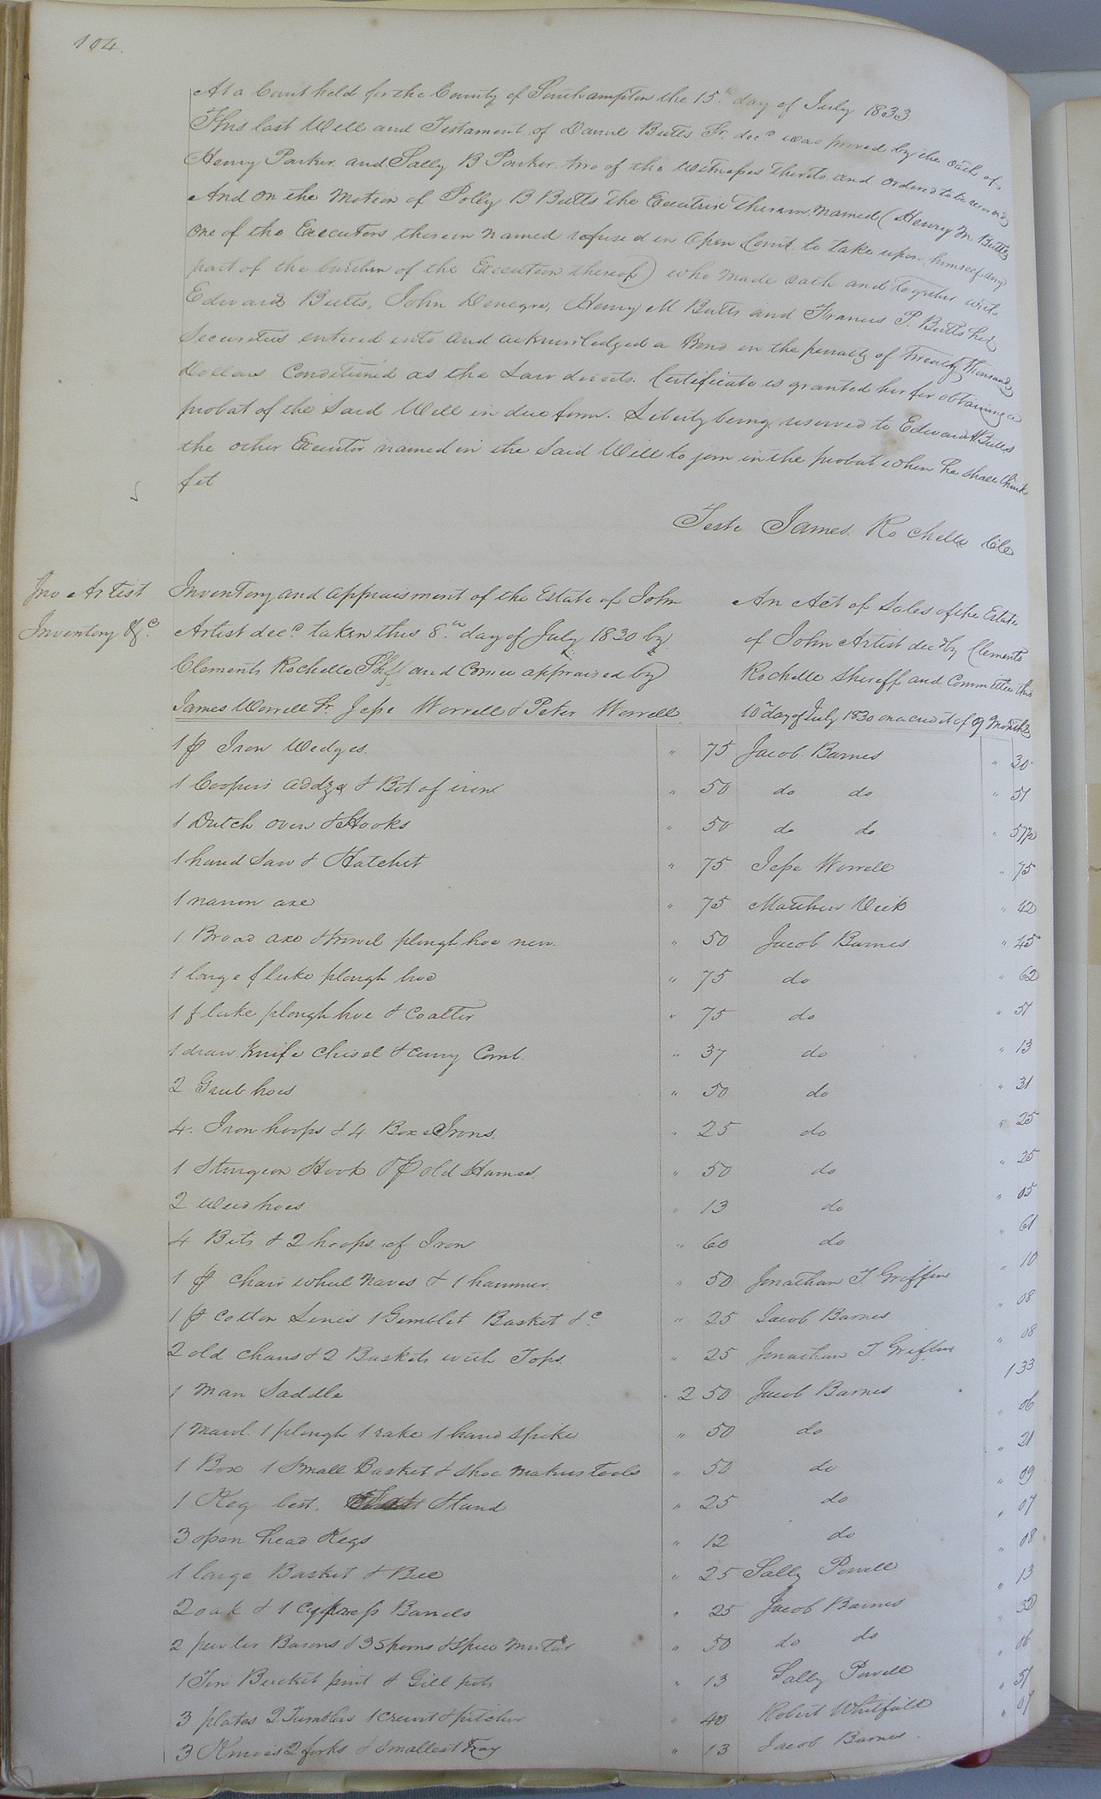 104.
At a Court held for the County of Southampton the 15th day of July 1833
This last Will and Testament of Daniel Butts Sr. decd was proved by the oath of
Henry Parker and Sally B Parker two of the witnesses thereto and ordered to be recorded
And on the Motion of Polly B Butts the Executrix therein named (Henry M. Butts
one of the Executors therein named refused in Open Court to take upon himself any
part of the burthen of the Execution thereof) who made oath and together with
Edward Butts, John Denegre, Henry M Butts and Francis P. Butts her
Securities entered into and acknowledged a Bond in the penalty of Twenty Thousand
Dollars Conditioned as the Law directs. Certificate is granted her for obtaining a
probat of the said Will in due form. Liberty being reserved to Edward Butts
the other Executor named in the said Will to join in the probat when he shall think
fit
Teste James Rochelle Clk
Jno Artist
Inventory &c.
Inventory and appraisment of the Estate of John
Artist decd taken this 8th day of July 1830 by
Clements Rochelle Shff and Comee appraised by
James Worrell Sr. Jesse Worrell & Peter Worrell
An Act of Sales of the Estate
of John Artist decd by Clements
Rochelle Sheriff and Committee this
10th day of July 1830 on a credit of 9 Months
1 p Iron Wedges " 75 Jacob Barnes " 30
1 Coopers addze & Bot of iron " 50 do do " 51
1 Dutch oven & Hooks " 50 do do " 57½
1 hand Saw & Hatchet " 75 Jesse Worrell " 75
1 narrow axe " 75 Matthew Deek " 42
1 Broad axe & trowel plough hoe new " 50 Jacob Barnes " 45
1 large fluke plough hoe " 75 do " 62
1 fluke plough hoe & Coalter " 75 do " 51
1 draw Knife chisel & curry Comb. " 37 do " 13
2 Grub hoes " 50 do " 31
4. Iron hoops & 4 Box Irons. " 25 do " 25
1 Sturgeon Hook & p old Hames. " 50 do " 25
2 Weed hoes " 13 do " 05
4 Bits & 2 hoops of Iron " 60 do " 61
1 p chair wheel naves & 1 hammer. " 50 Jonathan T. Griffin " 10
1 p Cotton Lines 1 Gimblet Basket &c " 25 Jacob Barnes " 08
2 old chairs & 2 Baskets with Tops. " 25 Jonathan T. Griffin " 08
1 Man Saddle 2 50 Jacob Barnes 1 33
1 Mawl. 1 plough 1 rake 1 hand spike " 50 do " 06
1 Box 1 Small Basket & Shoe makers tools " 50 do " 21
1 Keg Stand " 25 do " 09
3 open head Kegs " 12 do " 07
1 large Basket & Bee " 25 Sally Powell " 08
2 oak & 1 Cypress Barrels " 25 Jacob Barnes " 13
2 pewter Basons & 3 spoons & Spice Mortar " 50 do do " 32
1 Tin Bucket pint & Gill pots " 13 Sally Powell " 06
3 plates 2 Tumblers 1 cruet & pitcher " 40 Robert Whitfield " 51
3 Knives 2 forks & Smallest Tray " 13 Jacob Barnes " 07